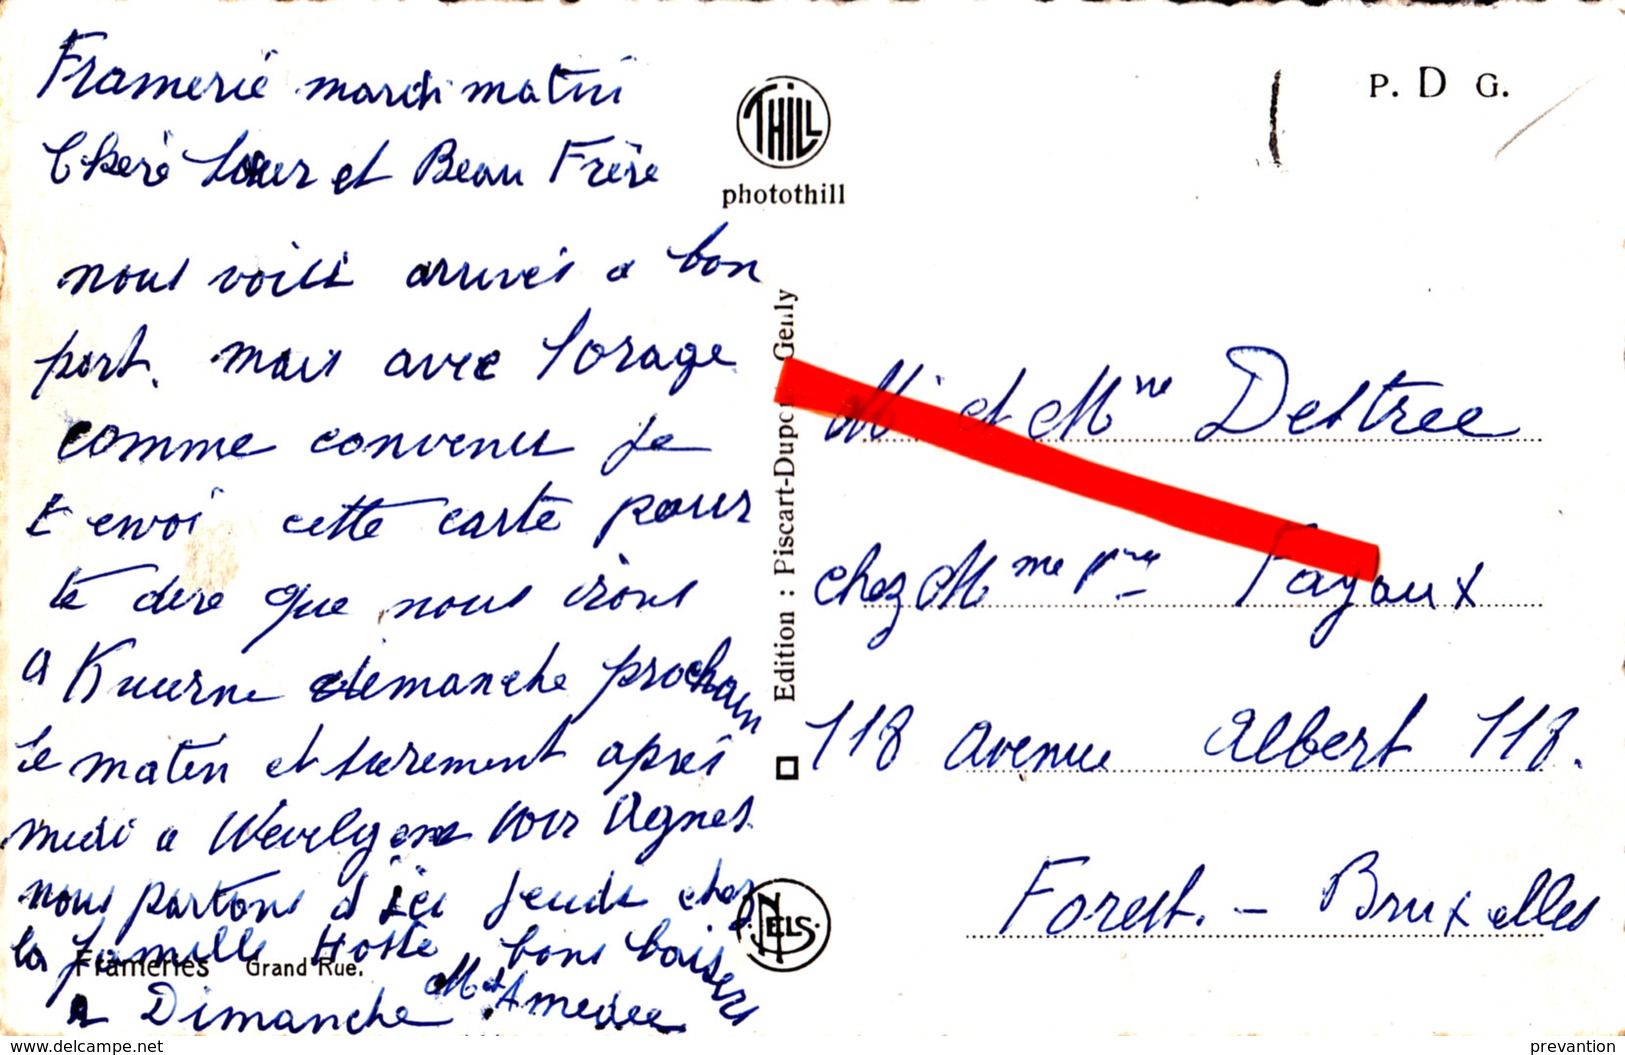 Framerie mardi matin
Cheré Sœur et Beau Frère
nous voilà arrivés a bon
port. mais avec l'orage
comme convenu je
t envoi cette carte pour
te dire que nous irons
a Kuurne dimanche prochain
le matin et surement après
midi a Wevelgem voir Agnes
nous partons d'ici jeudi chez
la famille Hoste bons baisers
a Dimanche M et Amedee
Frameries Grand'Rue.
THILL
photothill
Edition : Piscart-Dupont Genly
NELS.
P. D G.
Mr et Mme Destree
chez Mme Fayaux
118 avenue Albert 118.
Forest. - Bruxelles
www.delcampe.net
prevantion